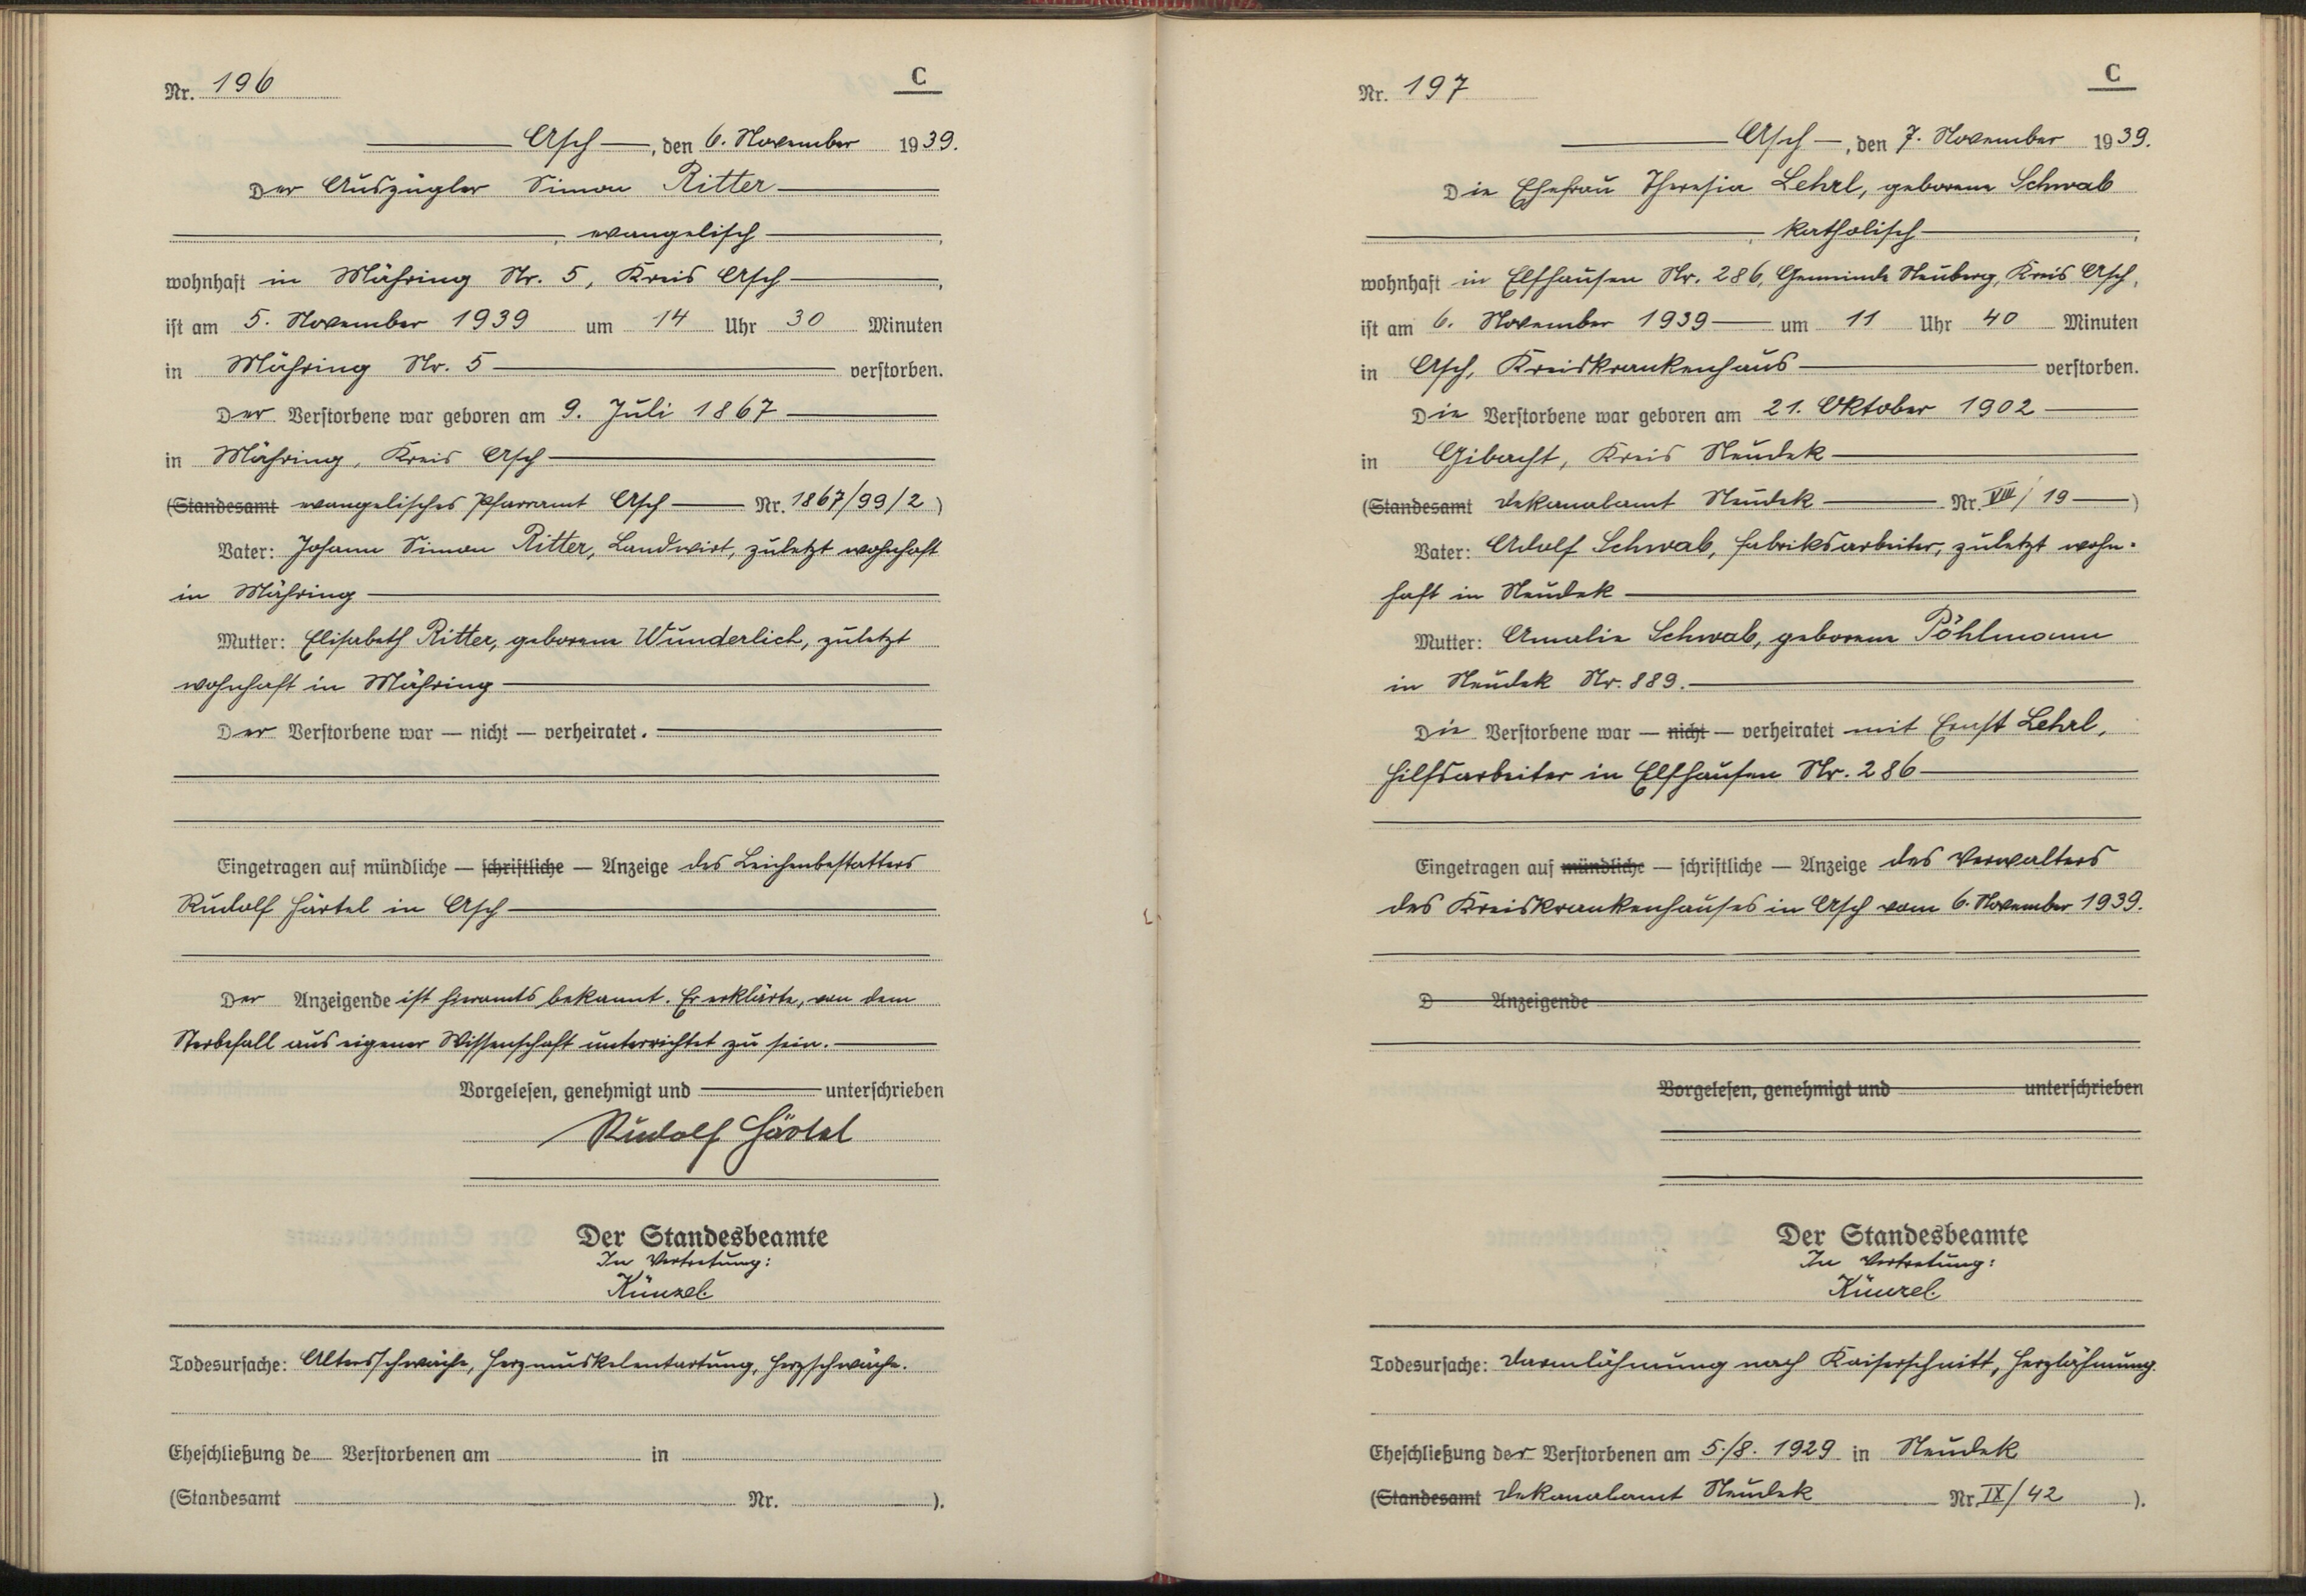 Nr. 196
C
Asch, den 6. November 1939.
Der Auszügler Simon Ritter
, evangelisch,
wohnhaft in Mähring Nr. 5, Kreis Asch,
ist am 5. November 1939 um 14 Uhr 30 Minuten
in Mähring Nr. 5 verstorben.
Der Verstorbene war geboren am 9. Juli 1867
in Mähring, Kreis Asch
(Standesamt evangelisches Pfarramt Asch Nr. 1867/99/2)
Vater: Johann Simon Ritter, Landwirt, zuletzt wohnhaft
in Mähring
Mutter: Elisabeth Ritter, geborene Wunderlich, zuletzt
wohnhaft in Mähring
Der Verstorbene war — nicht — verheiratet.
Eingetragen auf mündliche — schriftliche — Anzeige des Leichenbestatters
Rudolf Härtel in Asch
Der Anzeigende ist hieramts bekannt. Er erklärte, von dem
Sterbefall aus eigener Wissenschaft unterrichtet zu sein.
Vorgelesen, genehmigt und unterschrieben
Rudolf Härtel
Der Standesbeamte
In Vertretung:
Künzel.
Todesursache: Altersschwäche, Herzmuskelentartung, Herzschwäche.
Eheschließung de Verstorbenen am in
(Standesamt Nr. ).
Nr. 197
C
Asch, den 7. November 1939.
Die Ehefrau Theresia Lehrl, geborene Schwab
, katholisch,
wohnhaft in Elfhausen Nr. 286, Gemeinde Neuberg, Kreis Asch,
ist am 6. November 1939 um 11 Uhr 40 Minuten
in Asch, Kreiskrankenhaus verstorben.
Die Verstorbene war geboren am 21. Oktober 1902
in Gibacht, Kreis Neudek
(Standesamt Dekanalamt Neudek Nr. VIII/19)
Vater: Adolf Schwab, Fabriksarbeiter, zuletzt wohn-
haft in Neudek
Mutter: Amalie Schwab, geborene Pöhlmann
in Neudek Nr. 889.
Die Verstorbene war — nicht — verheiratet mit Ernst Lehrl,
Hilfsarbeiter in Elfhausen Nr. 286
Eingetragen auf mündliche — schriftliche — Anzeige des Verwalters
des Kreiskrankenhauses in Asch vom 6. November 1939.
D Anzeigende
Vorgelesen, genehmigt und unterschrieben
Der Standesbeamte
In Vertretung:
Künzel.
Todesursache: Darmlähmung nach Kaiserschnitt, Herzlähmung.
Eheschließung der Verstorbenen am 5./8. 1929 in Neudek
(Standesamt Dekanalamt Neudek Nr. IX/42 ).